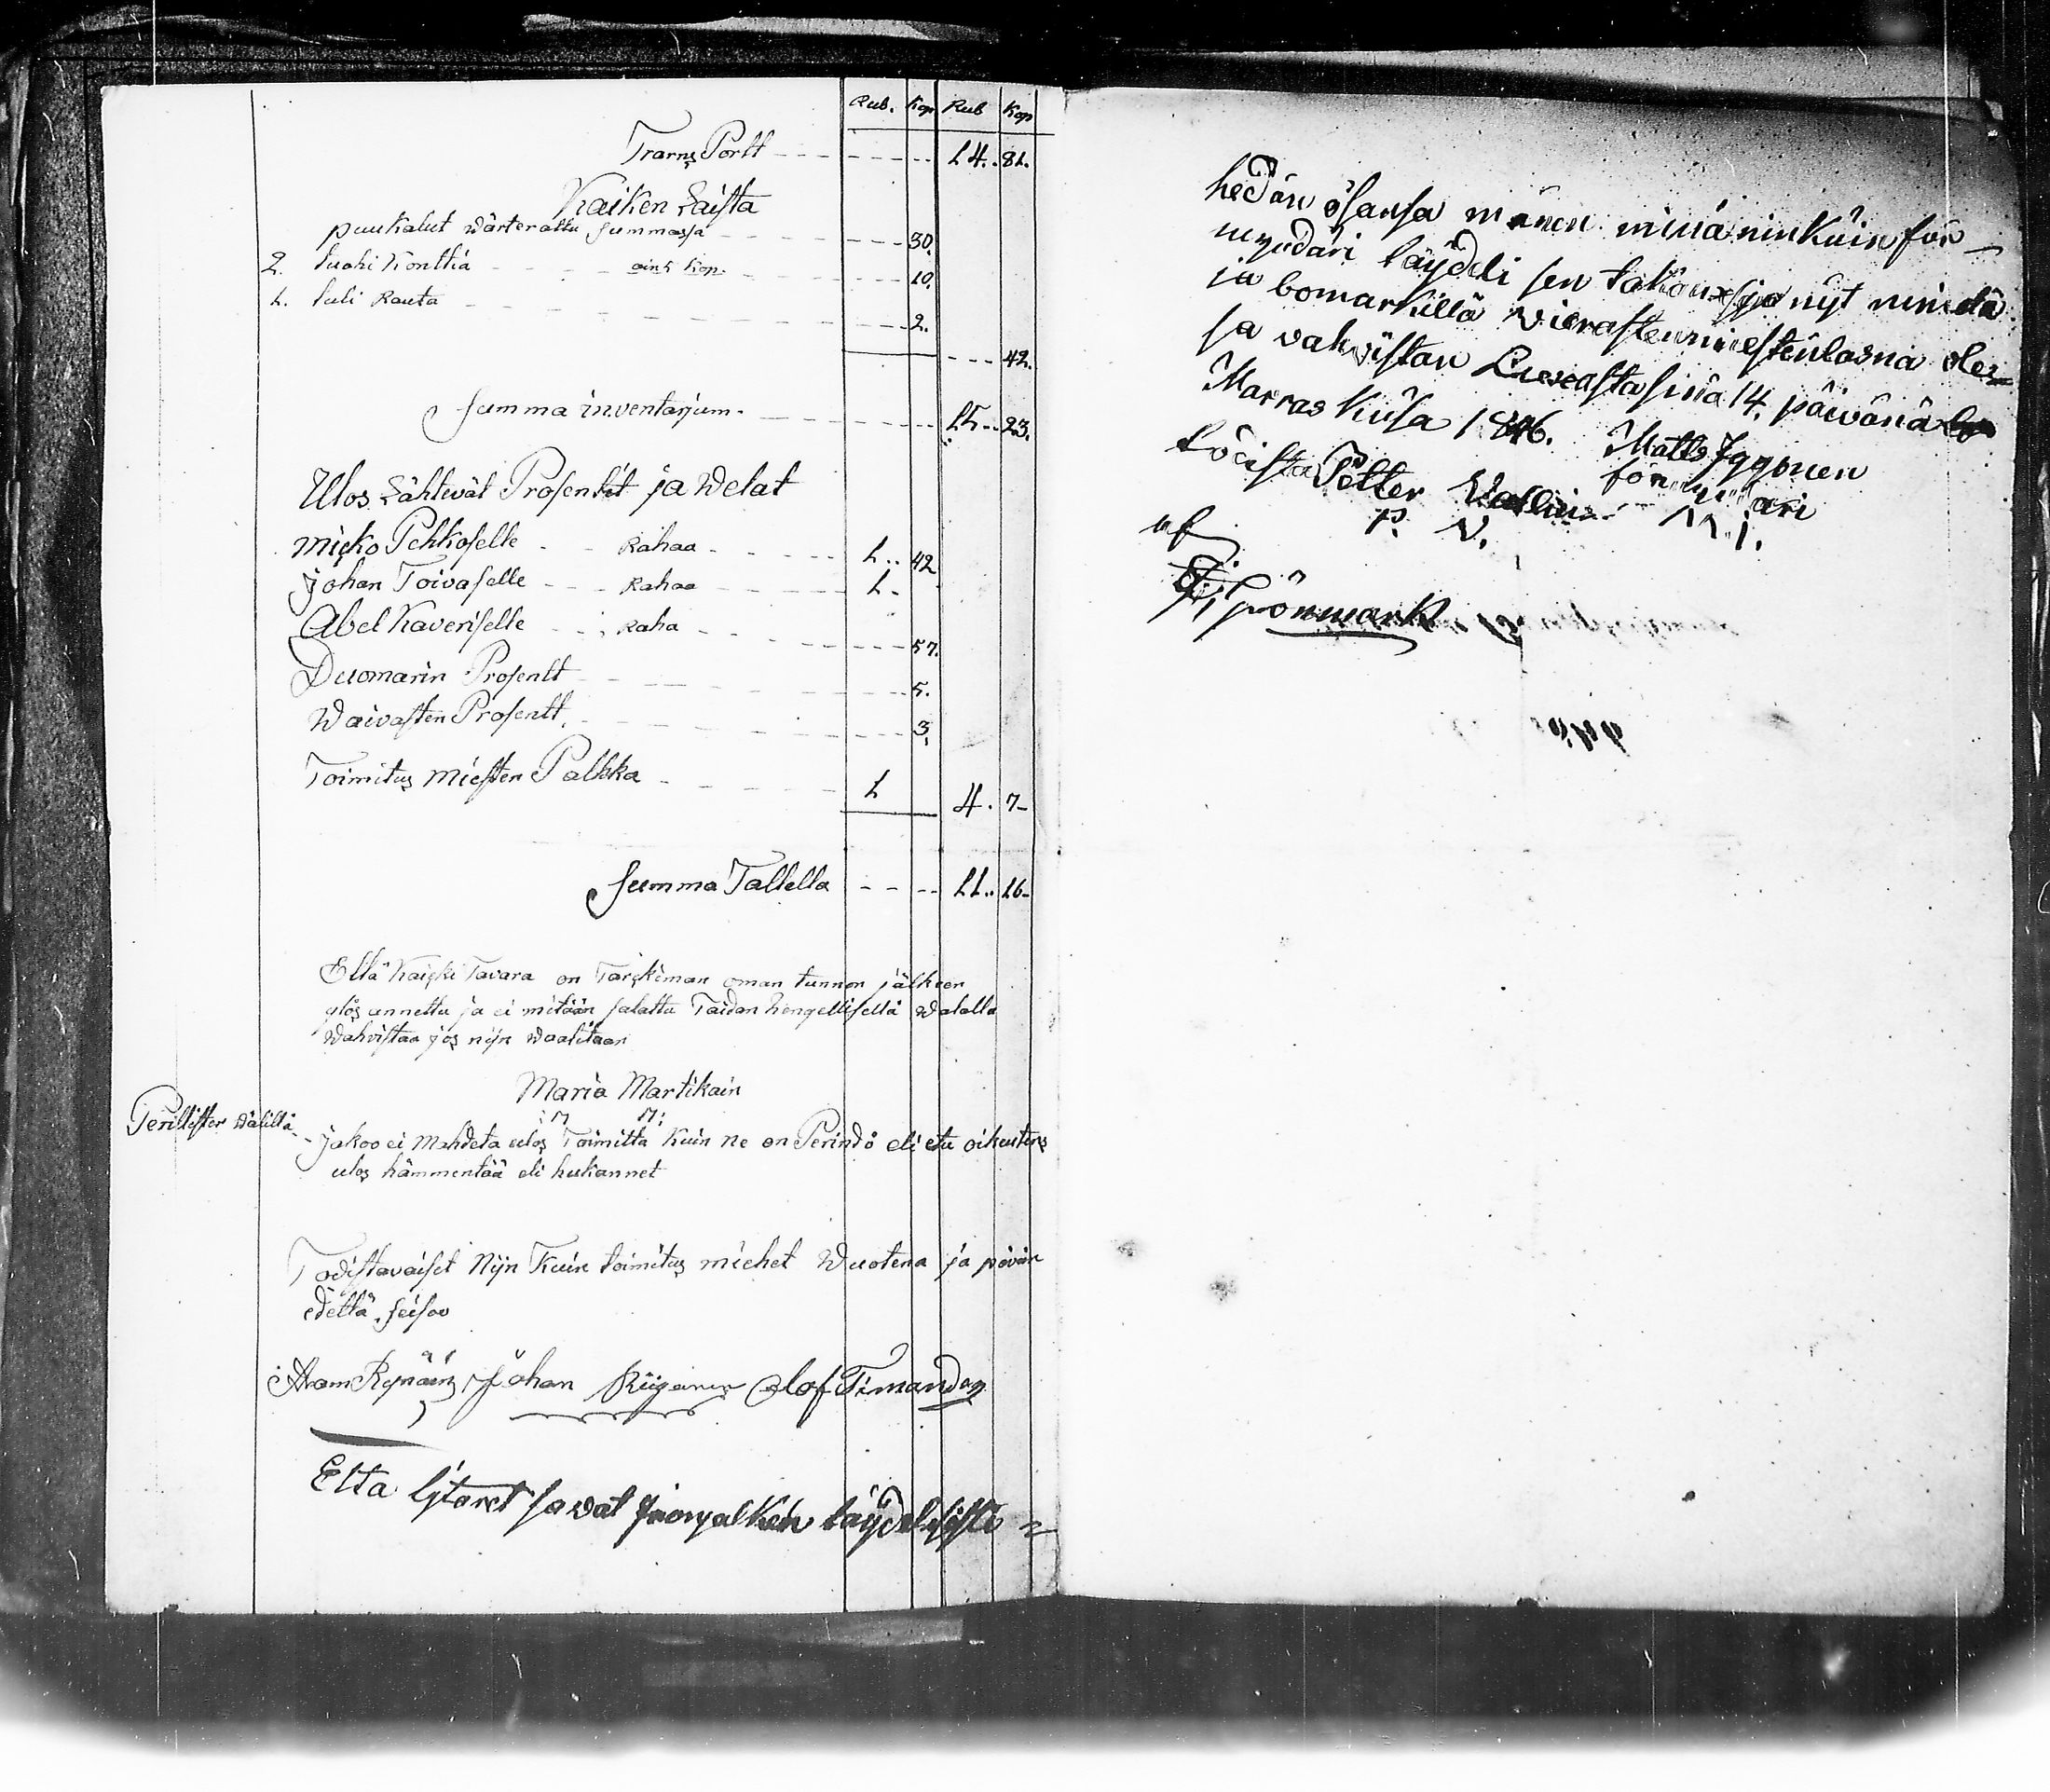 Rub. Kop Rub Kop
Trans Portt 14. 81.
Kaiken Laista
puukalut Wärterattu Summassa 30.
2. tuohi Konttia á in 5 Kop. 10.
1. tuli Rauta 2.
42.
Summa inventarjum. 15 23.
Ulos Lähtevät Prosentit ja Welat
Micko Pehkoselle Rahaa 1 42
Johan Toivaselle Rahaa 1
Abel Kaveriselle Raha 57.
Duomarin Prosentt 5.
Waivasten Prosentt. 3.
Toimitus Miesten Palkka 1 4. 7
Summa Tallella 11 16
Että Kaicki Tavara on Tarckiman oman tunnon jälkeen
ylös annettu ja ei mitään salattu Taidan hengellisellä Walalla
Wahvistaa jos nijn Waaditaan
Maria Martikain
M M
Perillisten Wälillä
jakoo ei Mahdeta ulos Toimitta Kuin ne on Perindö eli etu oikeutens
ulos hämmentää eli hukannet
Todistavaiset Nijn Kuin toimitus miehet Wuotena ja päivän
edellä, seisoo
Aram Rynäinz Johan Olof Timandag
Etta saavat täydelisesti
hedän osansa menen minä ninkuin för
myndäri täyddi sen ja nyt nimelä
ja bomarkillä vierasten miesten läsnä oles
sa vahvistan sinä 14. päivänä
Marras Kuusa 1846. Matts Jggonen
förmyndäri
todista Petter Vallin M. J.
P. V.
af
Grönmark